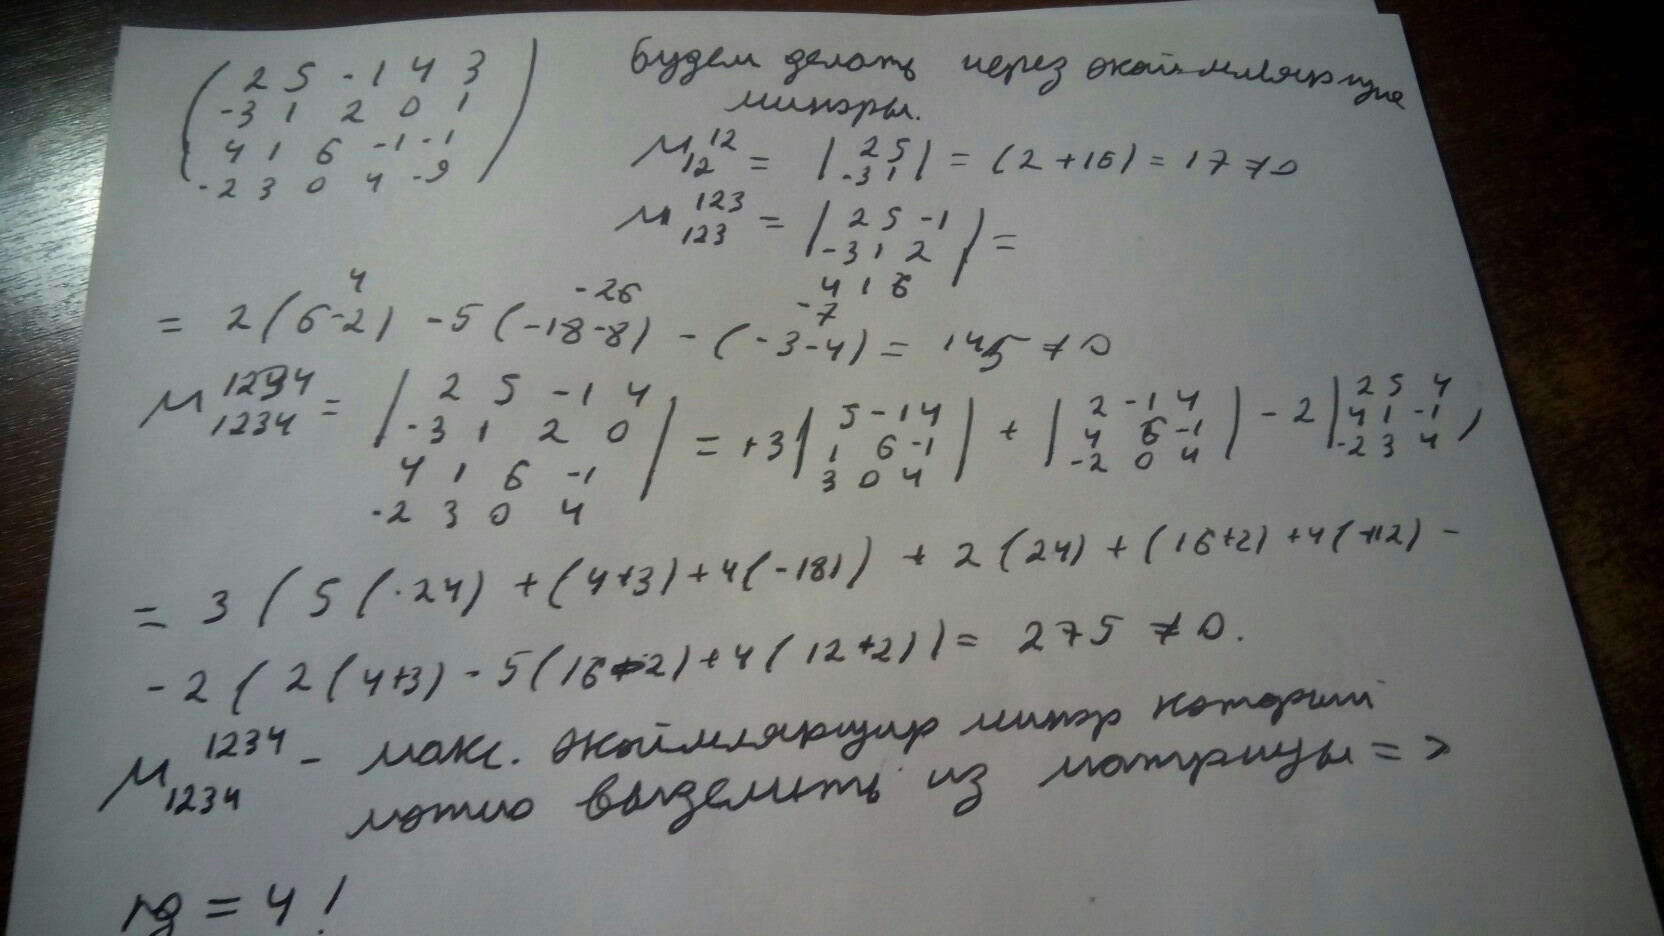 ( 2 5 -1 4 3 )
-3 1 2 0 1
4 1 6 -1 -1
-2 3 0 4 -9
будем делать через окаймляющие
миноры.
M 12 12 = | 2 5 | = (2 + 15) = 17 ≠ 0
-3 1
M 123 123 = | 2 5 -1 | =
-3 1 2
4 1 6
4 -26 -7
= 2(6-2) -5(-18-8) - (-3-4) = 145 ≠ 0
M 1234 1234 = | 2 5 -1 4 | = +3 | 5 -1 4 | + | 2 -1 4 | - 2 | 2 5 4 |
-3 1 2 0 1 6 -1 4 6 -1 4 1 -1
4 1 6 -1 3 0 4 -2 0 4 -2 3 4
-2 3 0 4
= 3(5(·24) + (4+3) + 4(-18)) + 2(24) + (16+2) + 4(+12) -
- 2(2(4+3) - 5(16-2) + 4(12+2)) = 275 ≠ 0.
M 1234 1234 - макс. окаймляющир минор который
можно выделить из матрицы =>
rg = 4!